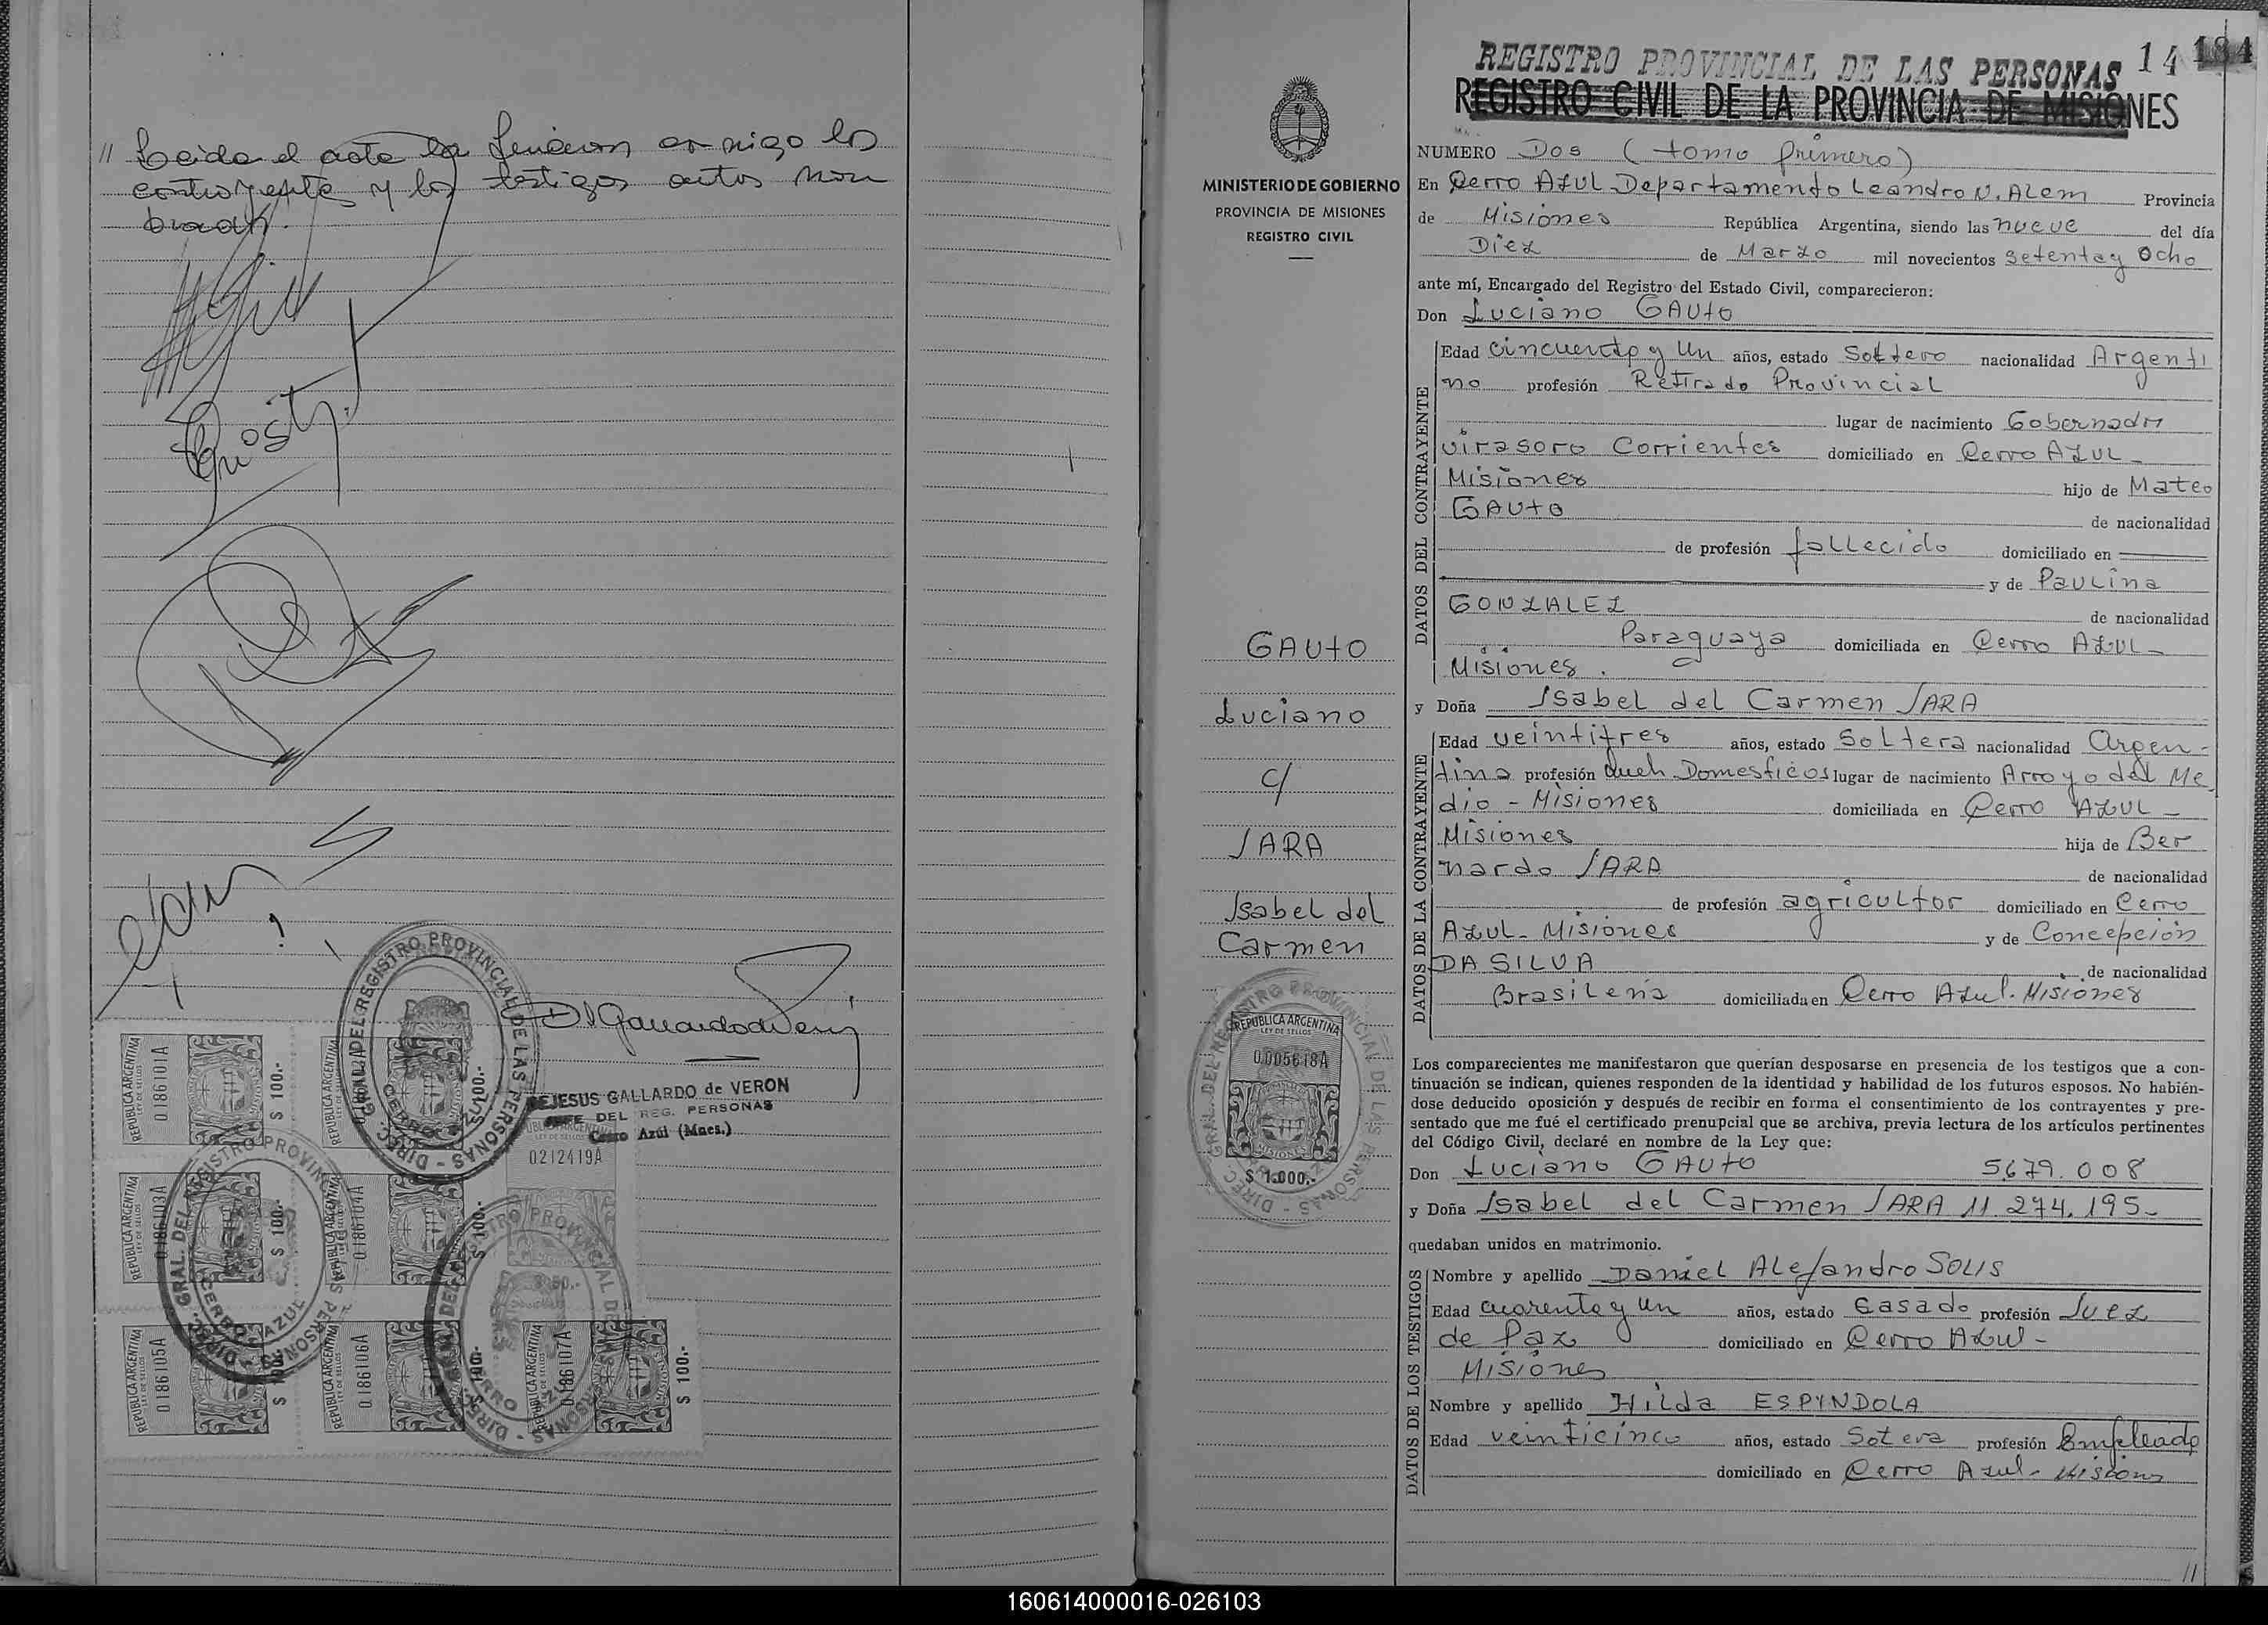 // Leida el acta la firmaron conmigo los
contrayentes y los testigos antes nom
brados.
DIREC. GRAL. DEL REGISTRO PROVINCIAL DE LAS PERSONAS - CERRO AZUL
DEJESUS GALLARDO de VERON
JEFE DEL REG. PERSONAS
Cerro Azúl (Mnes.)
REPUBLICA ARGENTINA
LEY DE SELLOS
0186101A
$ 100.-
REPUBLICA ARGENTINA
LEY DE SELLOS
$ 100.-
0212419A
REPUBLICA ARGENTINA
LEY DE SELLOS
0186103A
$ 100.-
REPUBLICA ARGENTINA
LEY DE SELLOS
0186104A
$ 100.-
REPUBLICA ARGENTINA
LEY DE SELLOS
0186105A
$ 100.-
REPUBLICA ARGENTINA
LEY DE SELLOS
0186106A
$ 100.-
REPUBLICA ARGENTINA
LEY DE SELLOS
0186107A
$ 100.-
REGISTRO PROVINCIAL DE LAS PERSONAS 14 184
REGISTRO CIVIL DE LA PROVINCIA DE MISIONES
MINISTERIO DE GOBIERNO
PROVINCIA DE MISIONES
REGISTRO CIVIL
GAUTO
Luciano
c/
JARA
Isabel del
Carmen
REPUBLICA ARGENTINA
LEY DE SELLOS
0005618A
MISIONES
$ 1.000.-
NUMERO Dos (tomo primero)
En Cerro Azul Departamento Leandro N. Alem Provincia
de Misiones República Argentina, siendo las nueve del día
Diez de Marzo mil novecientos setenta y Ocho
ante mí, Encargado del Registro del Estado Civil, comparecieron:
Don Luciano GAUTO
DATOS DEL CONTRAYENTE
Edad cincuenta y Un años, estado Soltero nacionalidad Argenti
no profesión Retirado Provincial
lugar de nacimiento Gobernador
Virasoro Corrientes domiciliado en Cerro Azul -
Misiones hijo de Mateo
GAUTO de nacionalidad
de profesión fallecido domiciliado en
y de Paulina
GONZALEZ de nacionalidad
Paraguaya domiciliada en Cerro Azul -
Misiones.
y Doña Isabel del Carmen JARA
DATOS DE LA CONTRAYENTE
Edad veintitres años, estado Soltera nacionalidad Argen-
tina profesión Queh Domesticos lugar de nacimiento Arroyo del Me
dio - Misiones domiciliada en Cerro Azul -
Misiones hija de Ber
nardo JARA de nacionalidad
de profesión agricultor domiciliado en Cerro
Azul - Misiones y de Concepción
DA SILVA de nacionalidad
Brasilena domiciliada en Cerro Azul - Misiones
Los comparecientes me manifestaron que querían desposarse en presencia de los testigos que a con-
tinuación se indican, quienes responden de la identidad y habilidad de los futuros esposos. No habién-
dose deducido oposición y después de recibir en forma el consentimiento de los contrayentes y pre-
sentado que me fué el certificado prenupcial que se archiva, previa lectura de los artículos pertinentes
del Código Civil, declaré en nombre de la Ley que:
Don Luciano GAUTO 5.679.008
y Doña Isabel del Carmen JARA 11.274.195-
quedaban unidos en matrimonio.
DATOS DE LOS TESTIGOS
Nombre y apellido Daniel Alejandro SOLIS
Edad cuarenta y un años, estado Casado profesión Juez
de Paz domiciliado en Cerro Azul -
Misiones
Nombre y apellido Hilda ESPINDOLA
Edad veinticinco años, estado Sotera profesión Empleada
domiciliado en Cerro Azul - Misiones
//
160614000016-026103